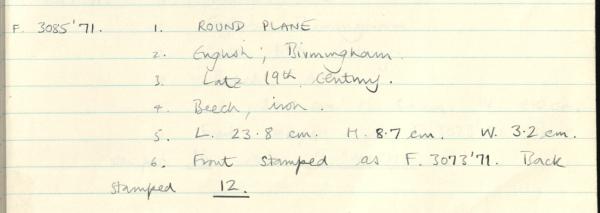 F. 3085'71. 1. ROUND PLANE
2. English; Birmingham.
3. Late 19th Century.
4. Beech, iron.
5. L. 23.8 cm. H. 8.7 cm. W. 3.2 cm.
6. Front stamped as F. 3073'71. Back
stamped 12.